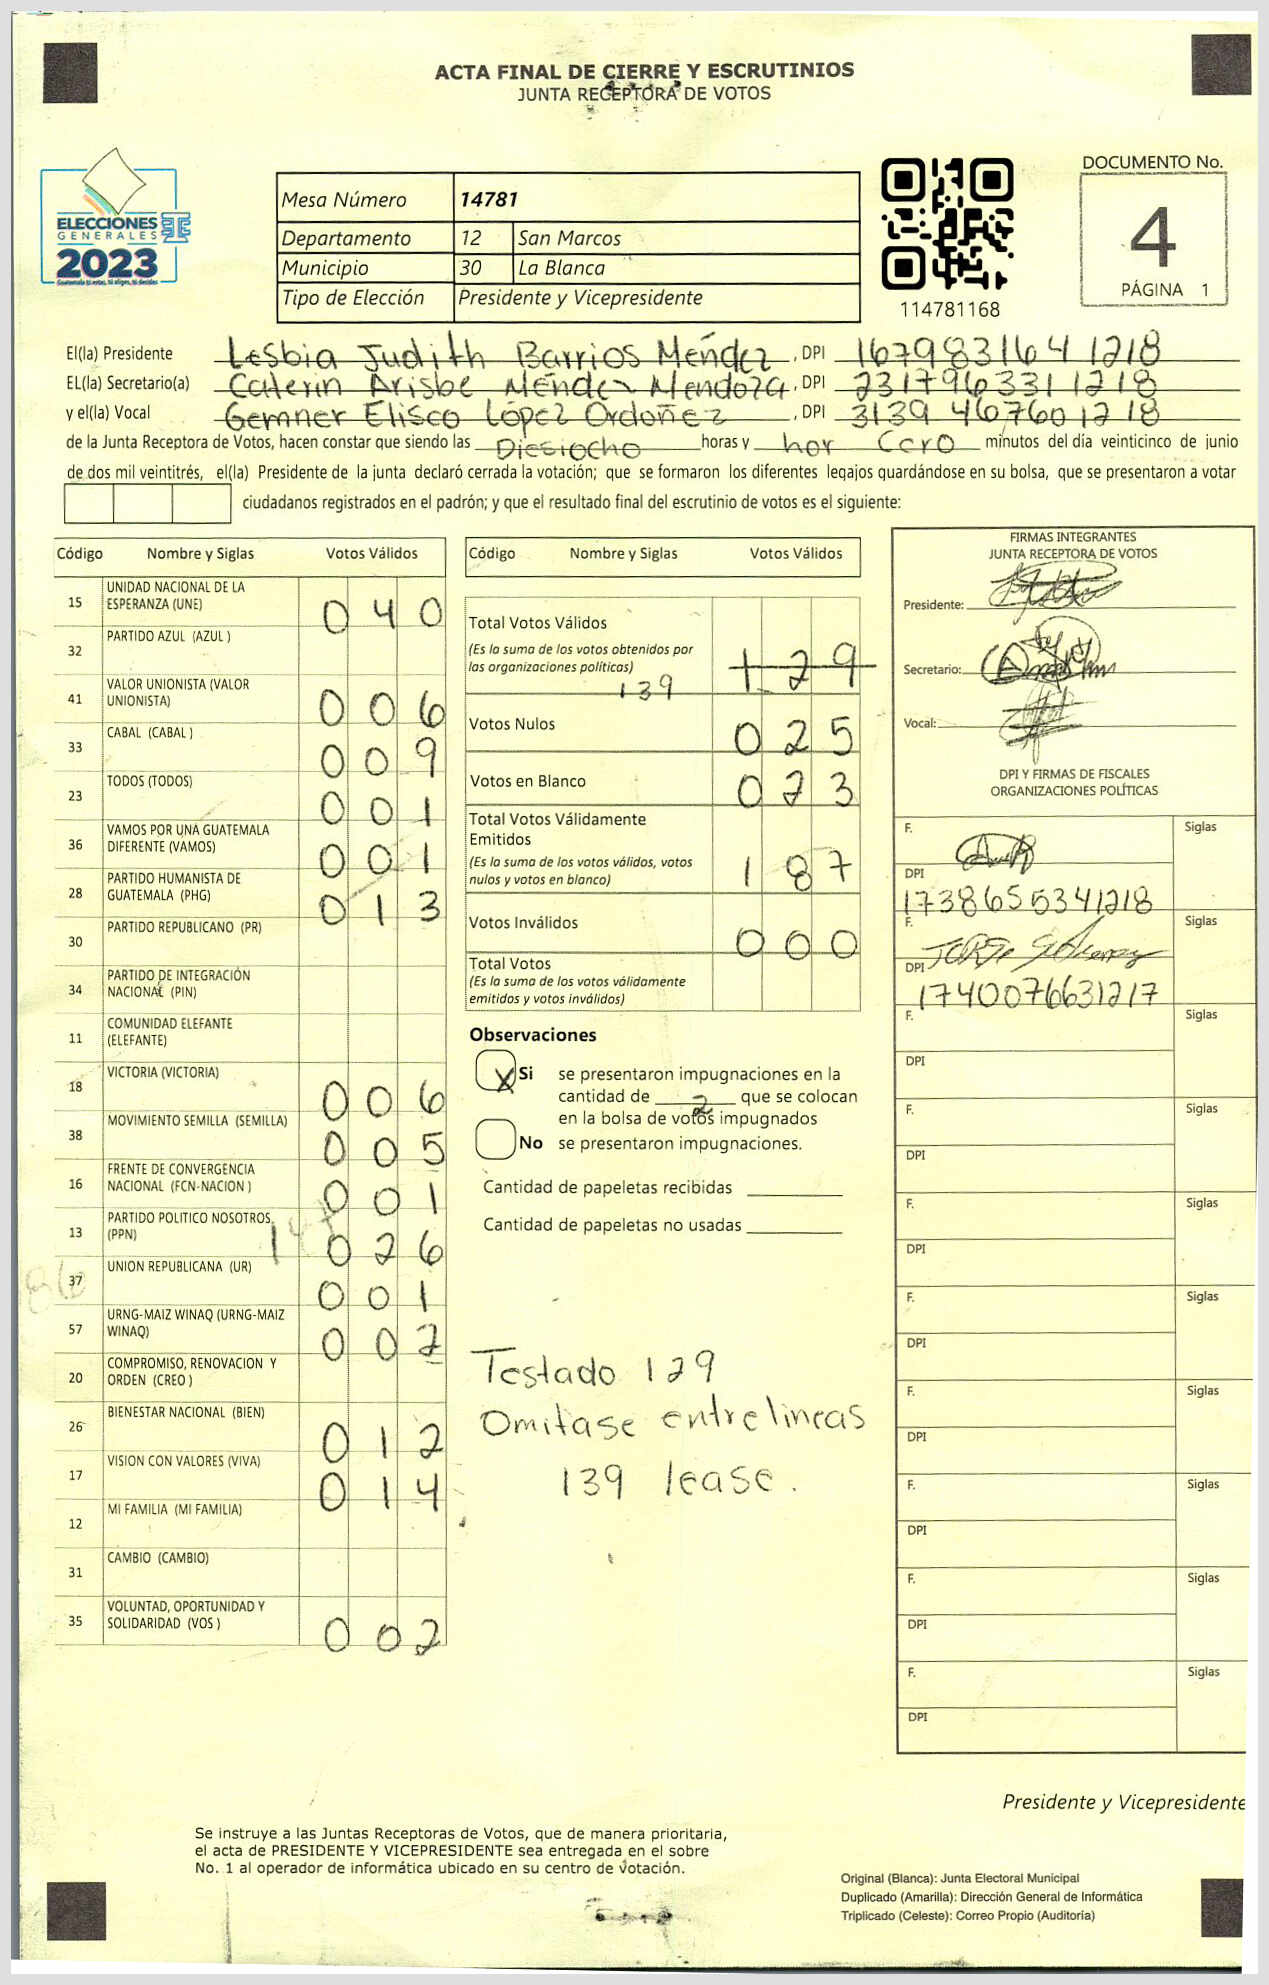 ACTA FINAL DE CIERRE Y ESCRUTINIOS
JUNTA RECEPTORA DE VOTOS
ELECCIONES
GENERALES
2023
Guatemala tú votas, tú eliges, tú decides
Mesa Número 14781
Departamento 12 San Marcos
Municipio 30 La Blanca
Tipo de Elección Presidente y Vicepresidente
114781168
DOCUMENTO No.
4
PÁGINA 1
El(la) Presidente Lesbia Judith Barrios Méndez, DPI 1679831641218
EL(la) Secretario(a) Caterin Arisbe Méndez Mendoza, DPI 2317963311218
y el(la) Vocal Gemner Elisco López Ordoñez, DPI 3139467601218
de la Junta Receptora de Votos, hacen constar que siendo las Dieciocho horas y hor Cero minutos del día veinticinco de junio
de dos mil veintitrés, el(la) Presidente de la junta declaró cerrada la votación; que se formaron los diferentes legajos guardándose en su bolsa, que se presentaron a votar
ciudadanos registrados en el padrón; y que el resultado final del escrutinio de votos es el siguiente:
Código Nombre y Siglas Votos Válidos
15 UNIDAD NACIONAL DE LA ESPERANZA (UNE) 0 4 0
32 PARTIDO AZUL (AZUL )
41 VALOR UNIONISTA (VALOR UNIONISTA) 0 0 6
33 CABAL (CABAL ) 0 0 9
23 TODOS (TODOS) 0 0 1
36 VAMOS POR UNA GUATEMALA DIFERENTE (VAMOS) 0 0 1
28 PARTIDO HUMANISTA DE GUATEMALA (PHG) 0 1 3
30 PARTIDO REPUBLICANO (PR)
34 PARTIDO DE INTEGRACIÓN NACIONAL (PIN)
11 COMUNIDAD ELEFANTE (ELEFANTE)
18 VICTORIA (VICTORIA) 0 0 6
38 MOVIMIENTO SEMILLA (SEMILLA) 0 0 5
16 FRENTE DE CONVERGENCIA NACIONAL (FCN-NACION ) 0 0 1
13 PARTIDO POLITICO NOSOTROS (PPN) 0 2 6
37 UNION REPUBLICANA (UR) 0 0 1
57 URNG-MAIZ WINAQ (URNG-MAIZ WINAQ) 0 0 2
20 COMPROMISO, RENOVACION Y ORDEN (CREO )
26 BIENESTAR NACIONAL (BIEN) 0 1 2
17 VISION CON VALORES (VIVA) 0 1 4
12 MI FAMILIA (MI FAMILIA)
31 CAMBIO (CAMBIO)
35 VOLUNTAD, OPORTUNIDAD Y SOLIDARIDAD (VOS ) 0 0 2
Código Nombre y Siglas Votos Válidos
Total Votos Válidos
(Es la suma de los votos obtenidos por
las organizaciones políticas) 1 2 9
139
Votos Nulos 0 2 5
Votos en Blanco 0 2 3
Total Votos Válidamente
Emitidos
(Es la suma de los votos válidos, votos
nulos y votos en blanco) 1 8 7
Votos Inválidos 0 0 0
Total Votos
(Es la suma de los votos válidamente
emitidos y votos inválidos)
Observaciones
X Si se presentaron impugnaciones en la
cantidad de 2 que se colocan
en la bolsa de votos impugnados
No se presentaron impugnaciones.
Cantidad de papeletas recibidas
Cantidad de papeletas no usadas
Testado 129
Omitase entrelineas
139 lease.
FIRMAS INTEGRANTES
JUNTA RECEPTORA DE VOTOS
Presidente:
Secretario:
Vocal:
DPI Y FIRMAS DE FISCALES
ORGANIZACIONES POLÍTICAS
F. Siglas
DPI
1738655341218
F. Siglas
DPI
1740076631217
F. Siglas
DPI
F. Siglas
DPI
F. Siglas
DPI
F. Siglas
DPI
F. Siglas
DPI
F. Siglas
DPI
F. Siglas
DPI
F. Siglas
DPI
Presidente y Vicepresidente
Se instruye a las Juntas Receptoras de Votos, que de manera prioritaria,
el acta de PRESIDENTE Y VICEPRESIDENTE sea entregada en el sobre
No. 1 al operador de informática ubicado en su centro de votación.
Original (Blanca): Junta Electoral Municipal
Duplicado (Amarilla): Dirección General de Informática
Triplicado (Celeste): Correo Propio (Auditoría)